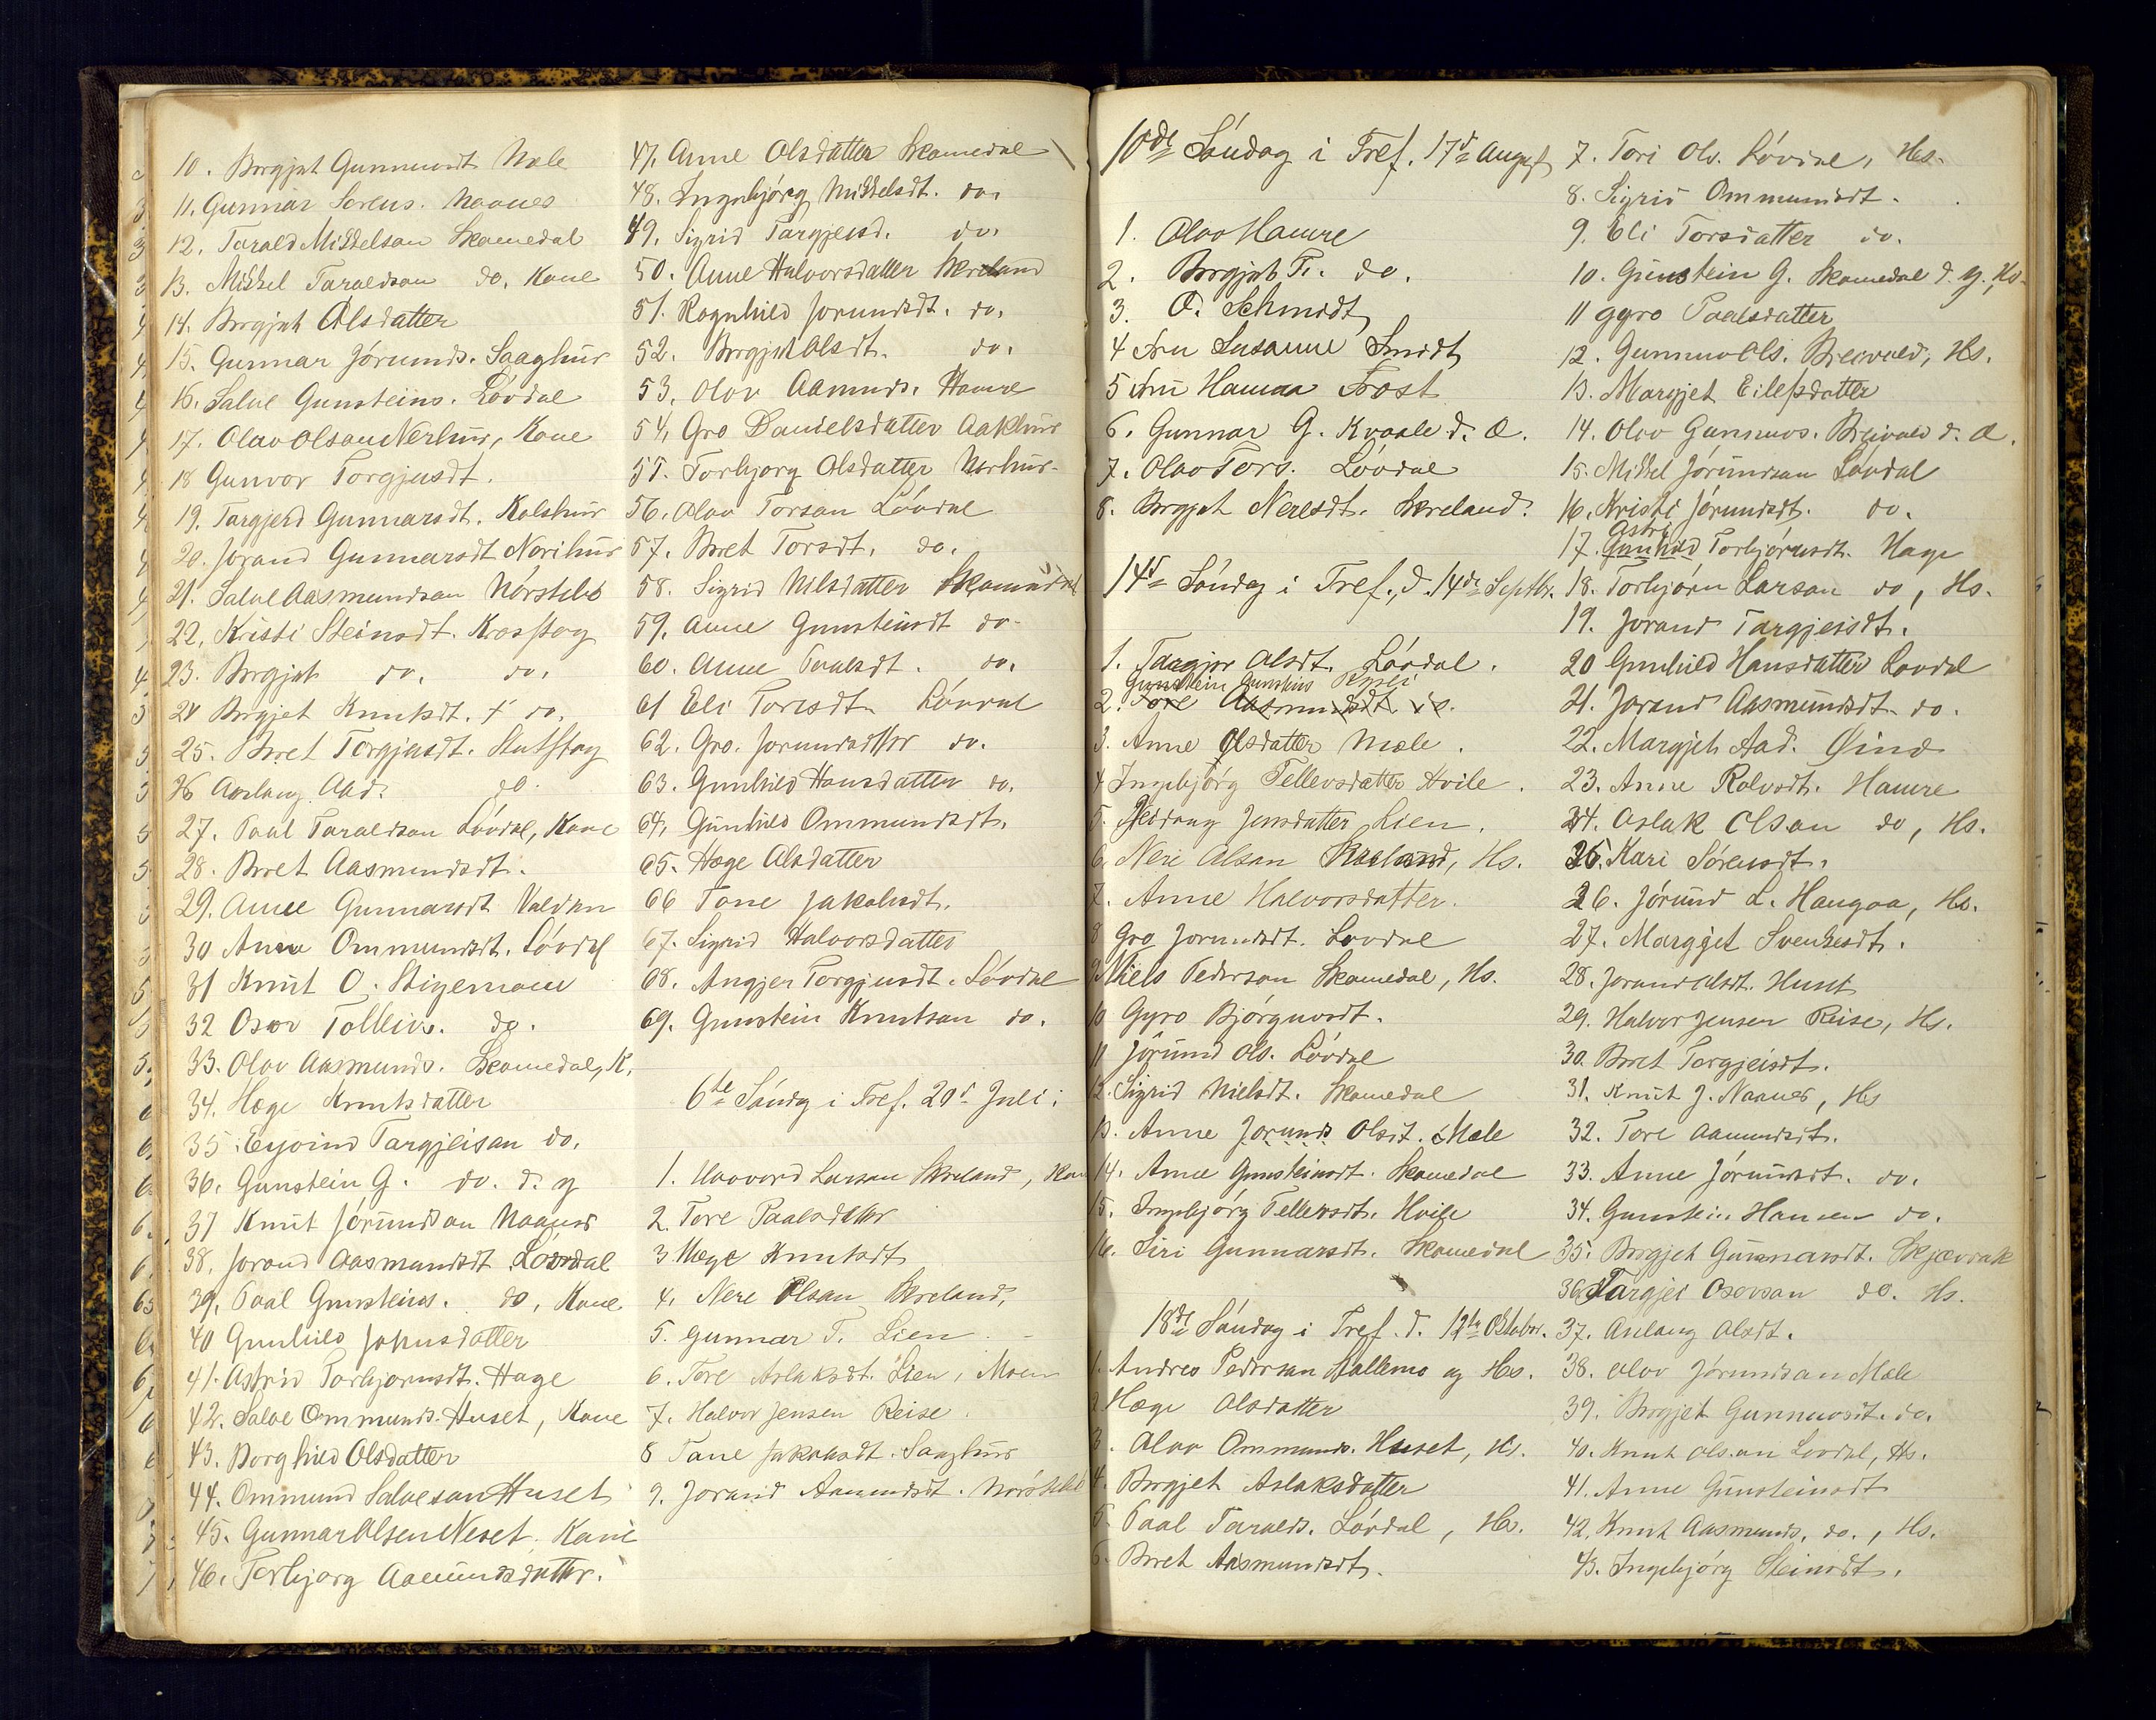 10. Borgjet Gunnuvsdt Mæle
11. Gunnar Sorens. Naanes
12. Tarald Mikkelson Skomedal
13. Mikkel Taraldson do. Kone
14. Borgjet Olsdatter
15. Gunnar Jórunds. Saaghus
16. Salve Gunsteins. Lóvdal
17. Olav Olson Nerhus, Kone
18 Gunvor Torgjusdt.
19. Targjerd Gunnarsdt. Kolshus
20. Jorand Gunnarsdt Norihus
21. Salve Aasmundson Nórstebó
22. Kristi Steinsdt. Krosstog
23. Borgjet do. do.
24 Borgjet Knutsdt. + do.
25. Boret Torgjusdt. Stutstog
26 Aaslaug Aad. do.
27. Paal Taraldson Lóvdal, Kone
28. Boret Aasmundsdt.
29. Anne Gunnarsdt
30 Anne Ommundsdt. Lóvdal
31 Knut O. Stigemoen
32 Osov Tolleivs. do.
33. Olav Aasmunds. Skomedal, K.
34. Hæge Knutsdatter
35. Eyvind Targjeison do.
36. Gunstein G. do. d. y
37 Knut Jórundson Naanes
38. Jorand Aasmundsdt Lóvdal
39. Paal Gunsteins. do, Kone
40 Gunhild Johnsdatter
41. Astrid Torbjornsdt. Hage
42. Salve Ommunds. Huset, Kone
43. Borghild Olsdatter
44. Ommund Salveson Huset
45. Gunnar Olsen Neset. Kone
46. Torbjorg Aamundsdatter.
47. Anne Olsdatter Skomedal
48. Ingebjórg Mikkelsdt. do.
49. Sigrid Targjeisd. do.
50. Anne Halvorsdatter Skreland
51. Ragnhild Jorundsdt. do.
52. Borgjet Olsdt. do.
53. Olov Aamunds. Hamre
54. Gro Danielsdatter Aakhus
55. Torbjorg Olsdatter Norhus
56. Olav Torson Lóvdal
57. Boret Torsdt. do.
58. Sigrid Nilsdatter Skomedal
59. Anne Gunsteinsdt do.
60. Anne Paalsdt. do.
61 Eli Torisdt. Lóvdal
62. Gro. Jorundsdttr do.
63. Gunhild Hansdatter do.
64. Gunhild Ommundsdt.
65. Hæge Olsdatter
66 Tone Jakobsdt.
67. Sigrid Halvorsdatter
68. Angjer Torgjusdt. Lóvdal
69. Gunstein Knutson do.
6te Sóndg i Tref. 20d Juli:
1. Haavard Larson Skreland, Kone
2. Tore Paalsdatter
3 Hæge Knutsdt
4. Nere Olson Skreland,
5. Gunnar T. Lien
6. Tore Aslaksdt. Lien, Moen
7. Halvor Jensen Reise.
8 Tone Jakobsdt. Saaghus
9. Jorand Aamundsdt. Nórstebó
10de Sóndag i Tref. 17de August
1. Olav Hamre
2. Borgjet T. do.
3. O. Schmidt
4 Fru Susanne Smidt
5 Fru Hanna Frost
6. Gunnar G. Kvaale d. Æ.
7. Olav Tors. Lóvdal
8. Borgjet Neresdt. Skreland.
14d Sóndag i Tref., d. 14de Septbr.
1. Taagjer Olsdt. Lóvdal.
Gunstein Gunsteins
2. Tore Aasmundsdt. do.
3. Anne Olsdatter Mæle.
4 Ingebjórg Tellevsdatter Hvile.
5. Jensdatter Lien.
6. Nere Olson Skreland, Hs.
7. Anne Halvorsdatter.
8 Gro Jorundsdt. Lovdal
9 Niels Pederson Skomedal, Hs.
10 Gyro Bjórgusdt.
11 Jórund Ols. Lóvdal
12. Sigrid Nielsdt. Skomedal
13. Anne Jorunds Olsdt. Mæle
14. Anne Gunsteinsdt. Skomedal
15. Ingebjórg Tellevsdt. Hvile
16. Siri Gunnarsdt. Skomedal
18de Sóndag i Tref. d. 12te Oktober.
1. Andreo Pederson Hallemo og Hs.
2 Hæge Olsdatter
3. Olav Ommunds. Huset, Hs.
4. Borgjet Aslaksdatter
5. Paal Taralds. Lóvdal, Hs.
6. Boret Aasmundsdt.
7. Tori Ols. Lóvdal, Hs.
8. Sigrid Ommundsdt.
9. Eli Torsdatter do.
10. Gunstein G. Skomedal d. y. Hs.
11 Gyro Paalsdatter
12. Gunnuv Ols. Breivald, Hs.
13. Margjet Eilefsdatter
14. Olov Gunnuvs. Breivald d. Æ.
15. Mikkel Jórundson Lóvdal
16. Kristi Jórundsdt. do.
Astri
17. Gunhild Torbjórnsdt. Hage
18. Torbjórn Larson do, Hs.
19. Jorand Targjeisdt.
20 Gunhild Hansdatter Lovdal
21. Jorand Aasmundsdt. do.
22. Margjet Aad. Óind
23. Anne Rolvsdt. Hamre
24. Aslak Olson do, Hs.
25. Kari Sórensdt.
26. Jórund L. Haugaa, Hs.
27. Margjet Svenkesdt.
28. Jorand Olsdt. Huset
29. Halvor Jensen Reise, Hs.
30. Boret Torgjeisdt.
31. Knut J. Naanes, Hs
32. Tore Aamundsdt.
33. Anne Jórundsdt. do.
34. Gunstein Hansen do.
35. Borgjet Gunnarsdt. Skjævdal
36. Targjei Osovson do. Hs.
37. Aslaug Olsdt.
38. Olov Jórundson Mæle
39. Borgjet Gunnuvsdt. do.
40. Knut Olson Lovdal, Hs.
41. Anne Gunsteinsdt
42. Knut Aasmunds. do., Hs.
43. Ingebjórg Steinsdt.